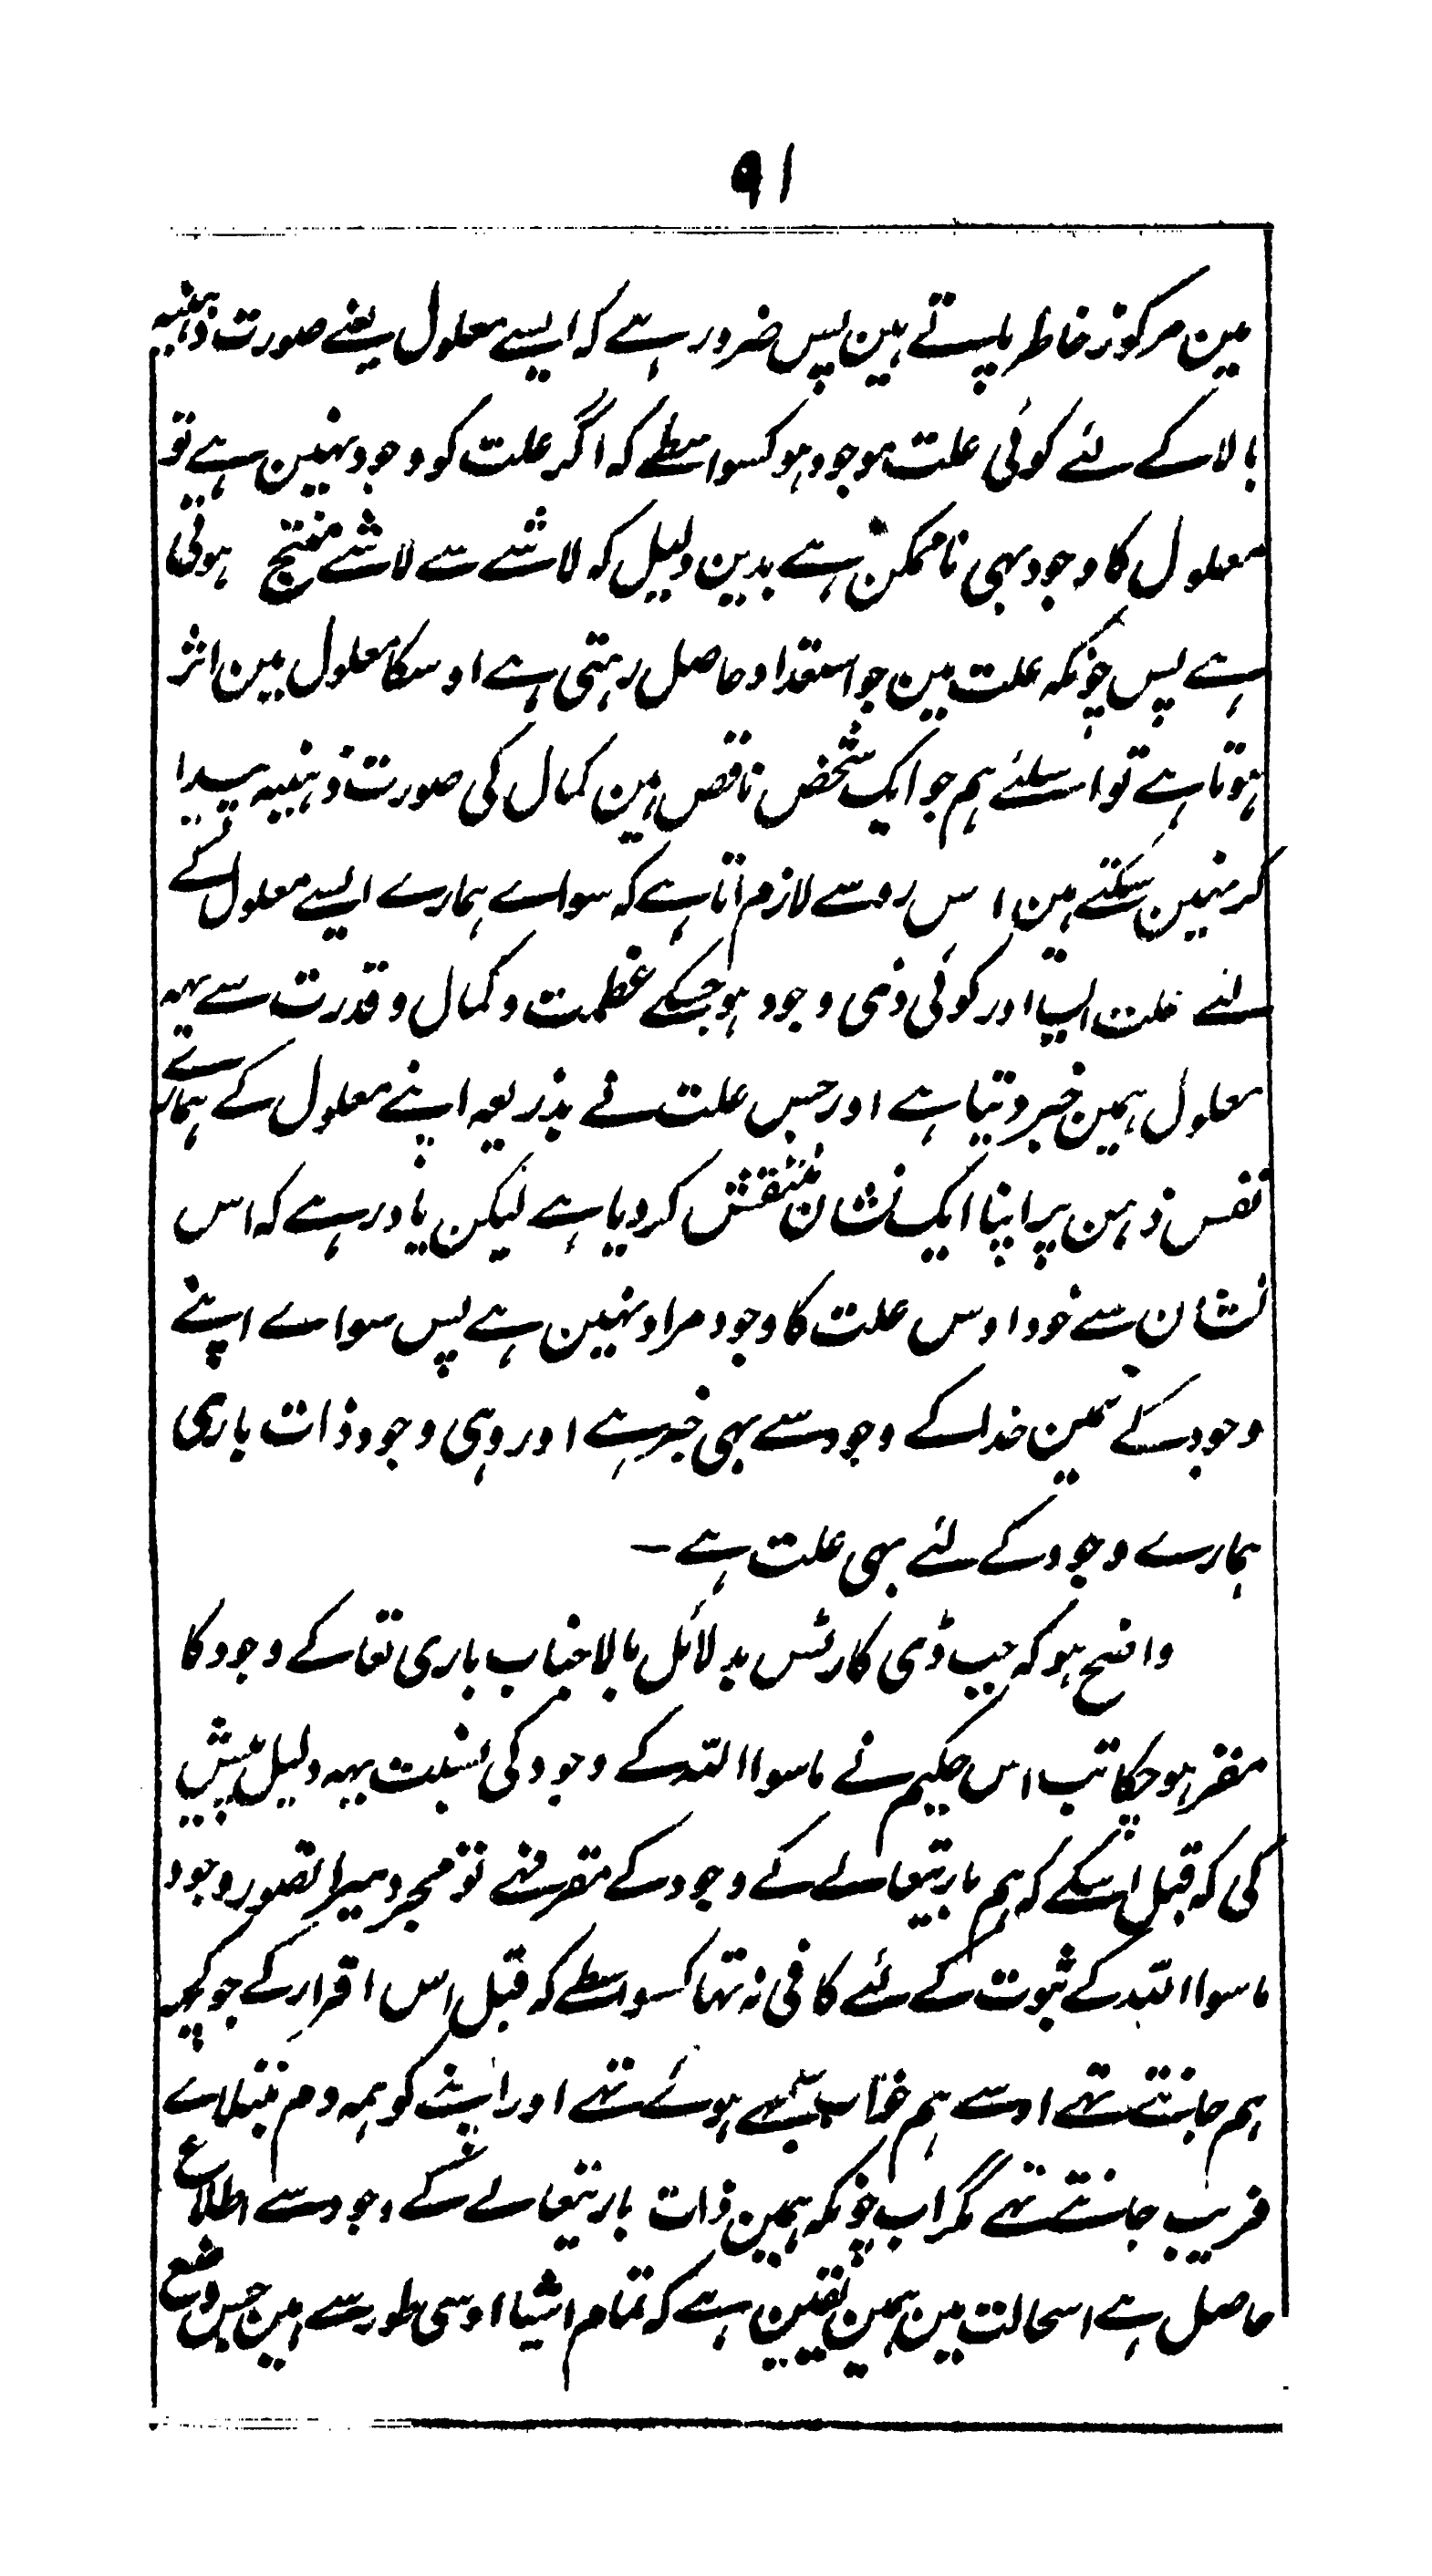 ۹۱
مین مرکوز خاطر پاتے ہین پس ضرور ہے کہ ایسے معلول یعنے صورت ذہنیہ
بالا کے لئے کوئی علت موجود ہو کسواسطے کہ اگر علت کو وجود نہین ہے تو
معلول کا وجود بہی ناممکن ہے بدین دلیل کہ لاشے سے لاشے منتج ہوتی
ہے پس چونکہ علت مین جو استعداد حاصل رہتی ہے اوسکا معلول مین اثر
ہوتا ہے تو اسلئے ہم جو ایک شخص ناقص ہین کمال کی صورت ذہنیہ پیدا
کر نہین سکتے ہین اس رو سے لازم آتا ہے کہ سواے ہمارے ایسے معلول کے
لئے علت ایسا اور کوئی ذی وجود ہو جسکے عظمت و کمال و قدرت سے یہہ
معلول ہمین خبر دیتا ہے اور جس علت نے بذریعہ اپنے معلول کے ہمارے
نفس ذہن پر اپنا ایک نشان منتقش کردیا ہے لیکن یاد رہے کہ اس
نشان سے خود اوس علت کا وجود مراد نہین ہے پس سواے اپنے
وجود کے ہمین خدا کے وجود سے بہی خبر ہے اور وہی وجود ذات باری
ہمارے وجود کے لئے بہی علت ہے ۔
واضح ہو کہ جب ڈی کارٹس بدلائل بالا جناب باری تعا کے وجود کا
مقر ہوچکا تب اس حکیم نے ماسوا اللہ کے وجود کی نسبت یہہ دلیل پیش
کی کہ قبل اسکے کہ ہم باریتعالے کے وجود کے مقر تہے تو مجرد میرا تصور وجود
ماسوا اللہ کے ثبوت کے لئے کافی نہ تہا کسواسطے کہ قبل اس اقرار کے جو کچہہ
ہم جانتے تہے اوسے ہم خواب سمجہے ہوئے تہے اور اپنے کو ہمہ دم مبتلاے
فریب جانتے تہے مگر اب چونکہ ہمین ذات باریتعالے کے وجود سے اطلاع
حاصل ہے اسحالت مین ہمین یقین ہے کہ تمام اشیا اوسی طور سے ہین جس وضع